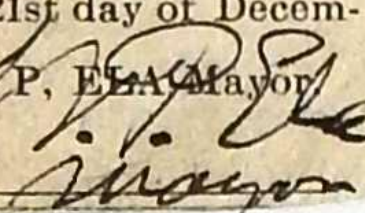 21st day of Decem-
P, ELA Mayor.
J. P. Ela
Mayor